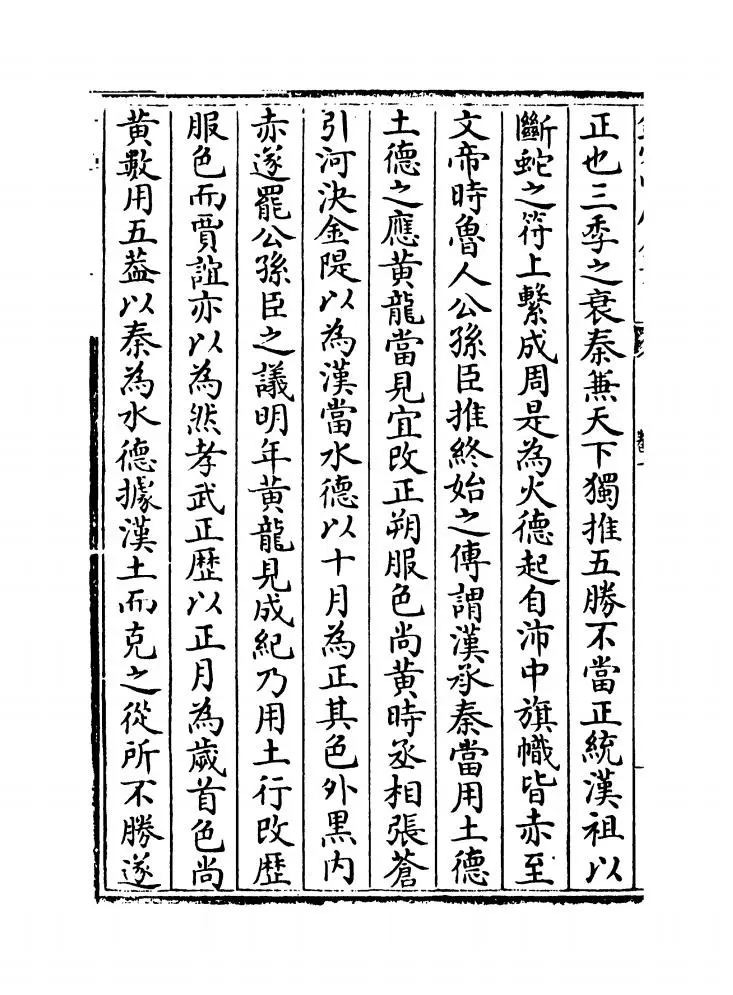 正也三季之衰秦兼天下獨推五勝不當正統漢祖以
斷蛇之符上繫成周是為火德起自沛中旗幟皆赤至
文帝時魯人公孫臣推終始之傳謂漢承秦當用土德
土德之應黄龍當見宜改正朔服色尚黄時丞相張蒼
引河決金隄以為漢當水德以十月為正其色外黒内
赤遂罷公孫臣之議明年黄龍見成紀乃用土行改歴
服色而賈誼亦以為然孝武正歴以正月為歲首色尚
黄數用五葢以秦為水德據漢土而克之從所不勝遂